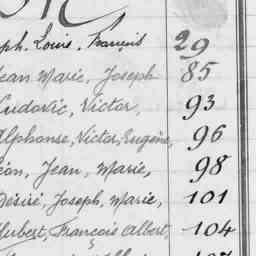 Louis, François 29
Jean Marie, Joseph 85
Ludovic, Victor, 93
Alphonse, Victor, Eugène, 96
Léon, Jean, Marie, 98
Désiré, Joseph, Marie, 101
Hubert, François Albert, 104